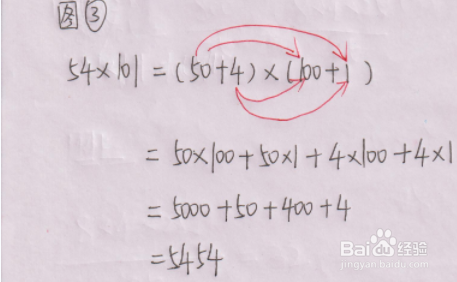 图③
54×101=(50+4)×(100+1)
=50×100+50×1+4×100+4×1
=5000+50+400+4
=5454
Baidu经验
jingyan.baidu.com